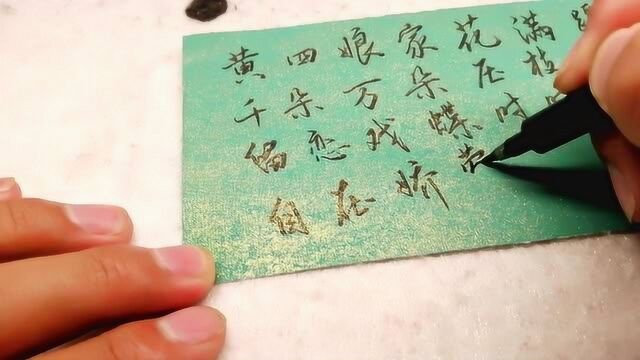 黄四娘家花满
千朵万朵压枝
留恋戏蝶时时
自在娇